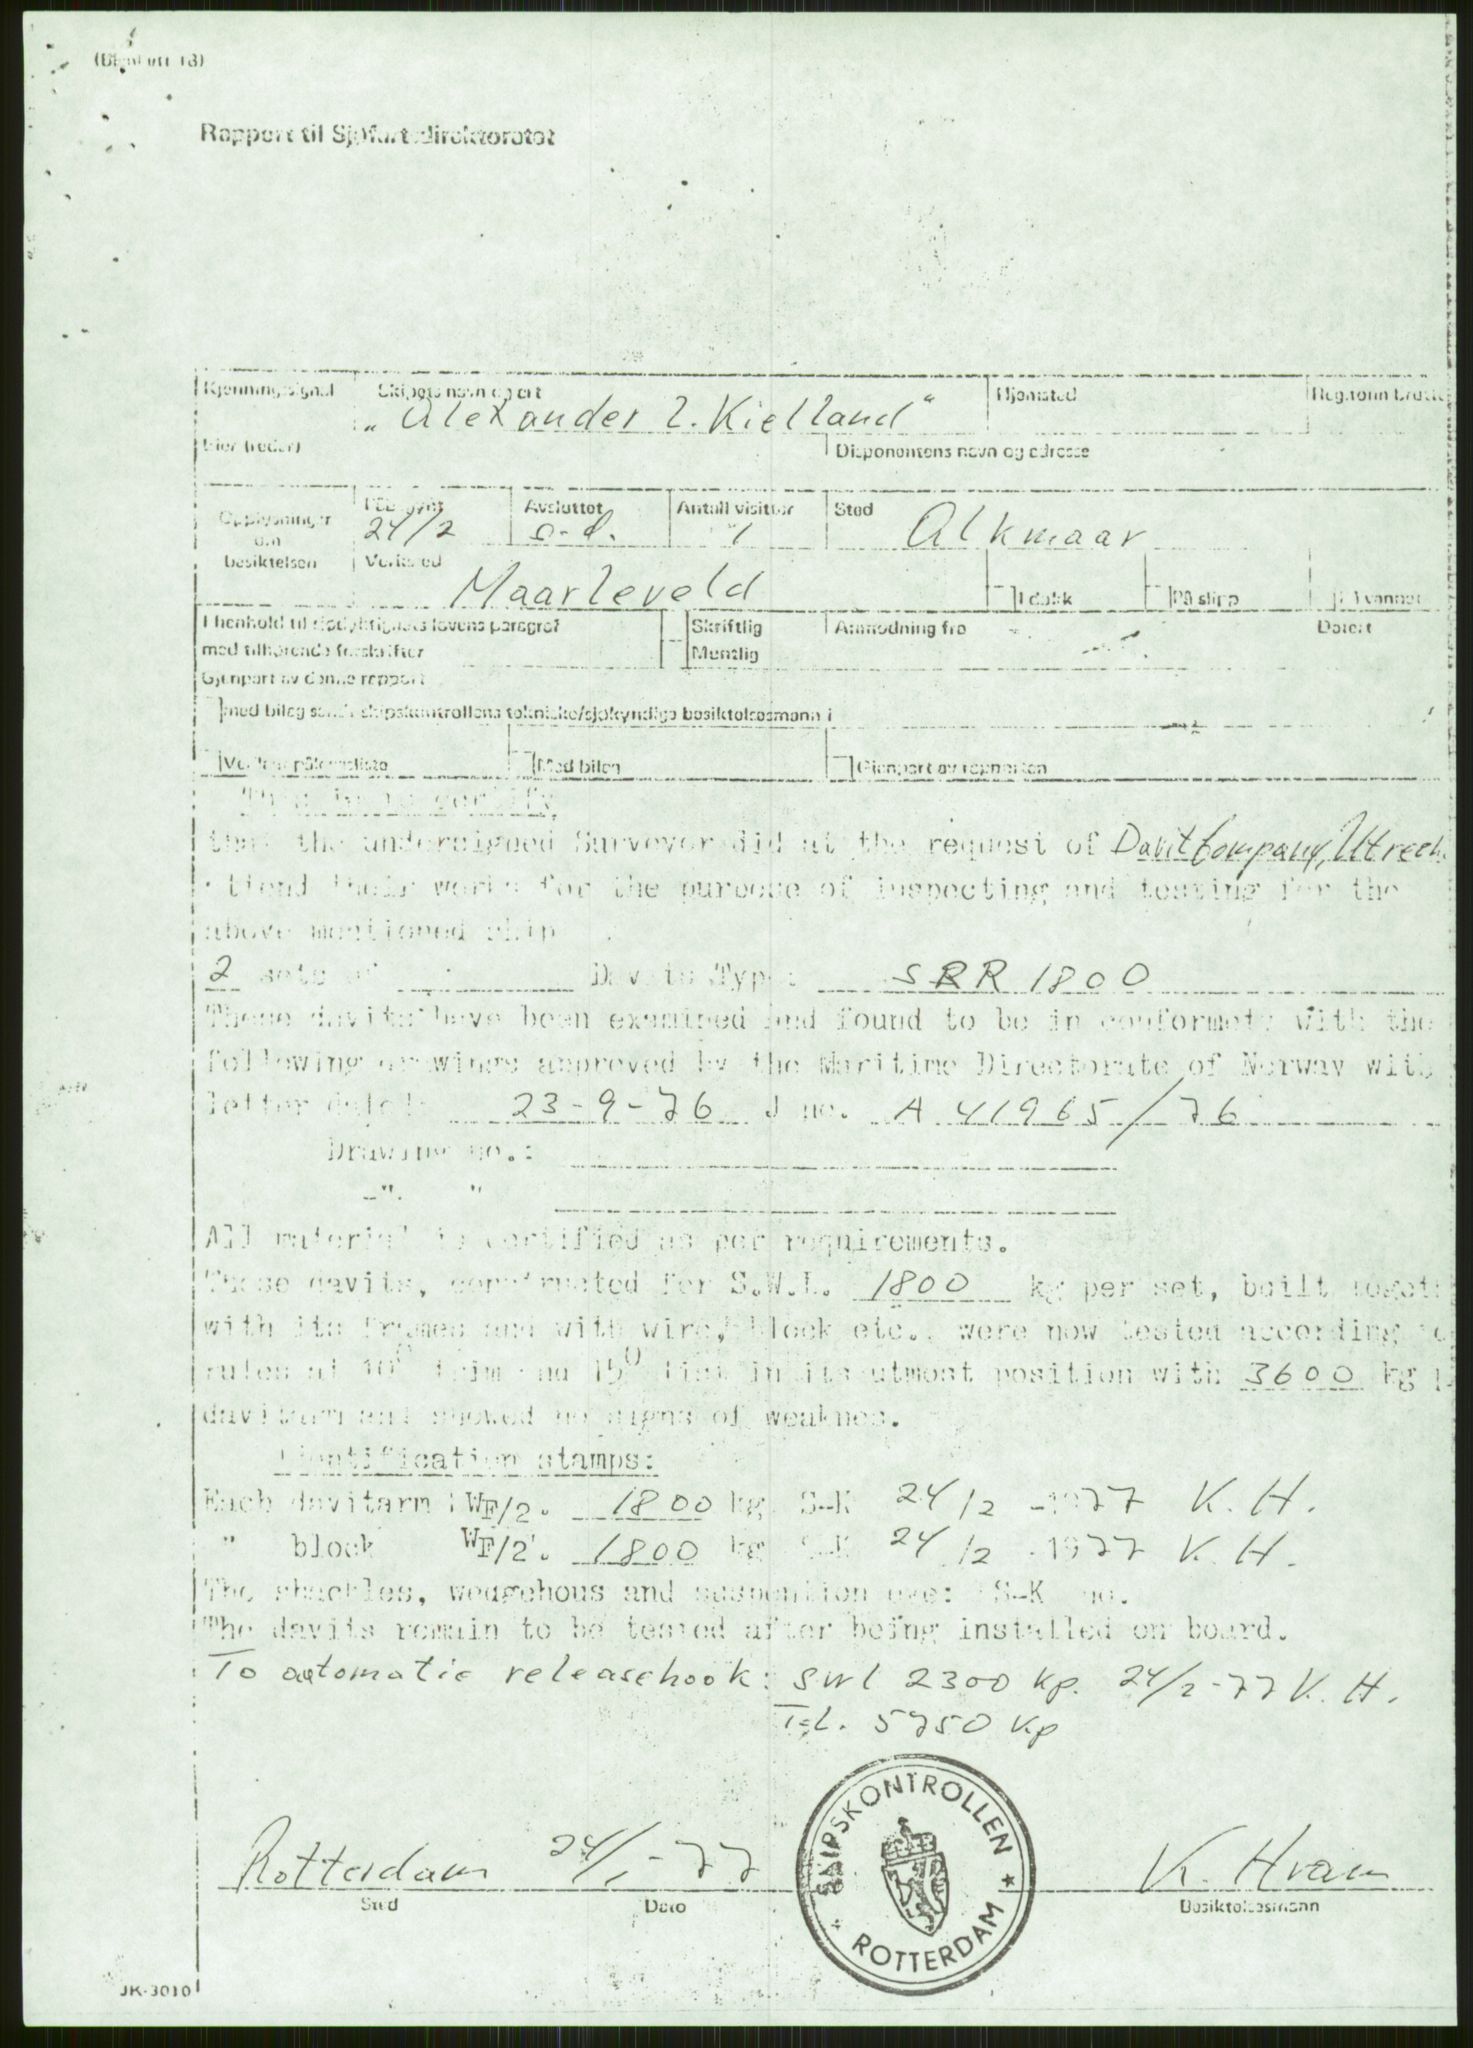 Rapport til Sjøfartsdirektoratet
Kjenningssignal Skipets navn og art Hjemsted Reg.tonn brutto
„Alexander L. Kielland"
Eier (reder) Disponentens navn og adresse
Opplysninger om besiktelsen Påbegynt Avsluttet Antall visitter Sted
24/2 s.d. 1 Alkmaar
Verksted
Maarleveld I dokk På slipp På vannet
I henhold til sjødyktighets lovens paragraf Skriftlig Anmodning fra Datert
med tilhørende forskrifter Muntlig
Gjenpart av denne rapport
med bilag sendt skipskontrollens tekniske/sjøkyndige besiktelsesmann i
Vedlagt påleggsliste Med bilag Gjenpart av rapporten
This is to certify
that the undersigned Surveyor did at the request of Davit Company, Utrech
attend their works for the purpose of inspecting and testing for the
above mentioned ship
2 sets of Davits Type: SRR 1800
These davits have been examined and found to be in conformety with the
following drawings approved by the Maritime Directorate of Norway with
letter dated: 23-9-76 J no. A 41965/76
Drawing no.:
-". "
All material is certified as per requirements.
These davits, constructed for S.W.L. 1800 kg per set, built
with its frames and with wire, block etc.. were now tested according to
rules at 10° trim and 15° list in its utmost position with 3600 kg
davitarm and showed no signs of weaknes.
Identification stamps:
Each davitarm WF/2. 1800 kg S-K 24/2 -1977 K. H.
" block WF/2. 1800 kg S-K 24/2 -1977 K. H.
The shackles, wedgehous and suspention eye: S-K no.
The davits remain to be tested after being installed on board.
To automatic releasehook: swl 2300 kp. 24/2-77 K. H.
T.L. 5750 kp
SKIPSKONTROLLEN
ROTTERDAM
Rotterdam 24/ -77 K. Hvam
Sted Dato Besiktelsesmann
JK-3010